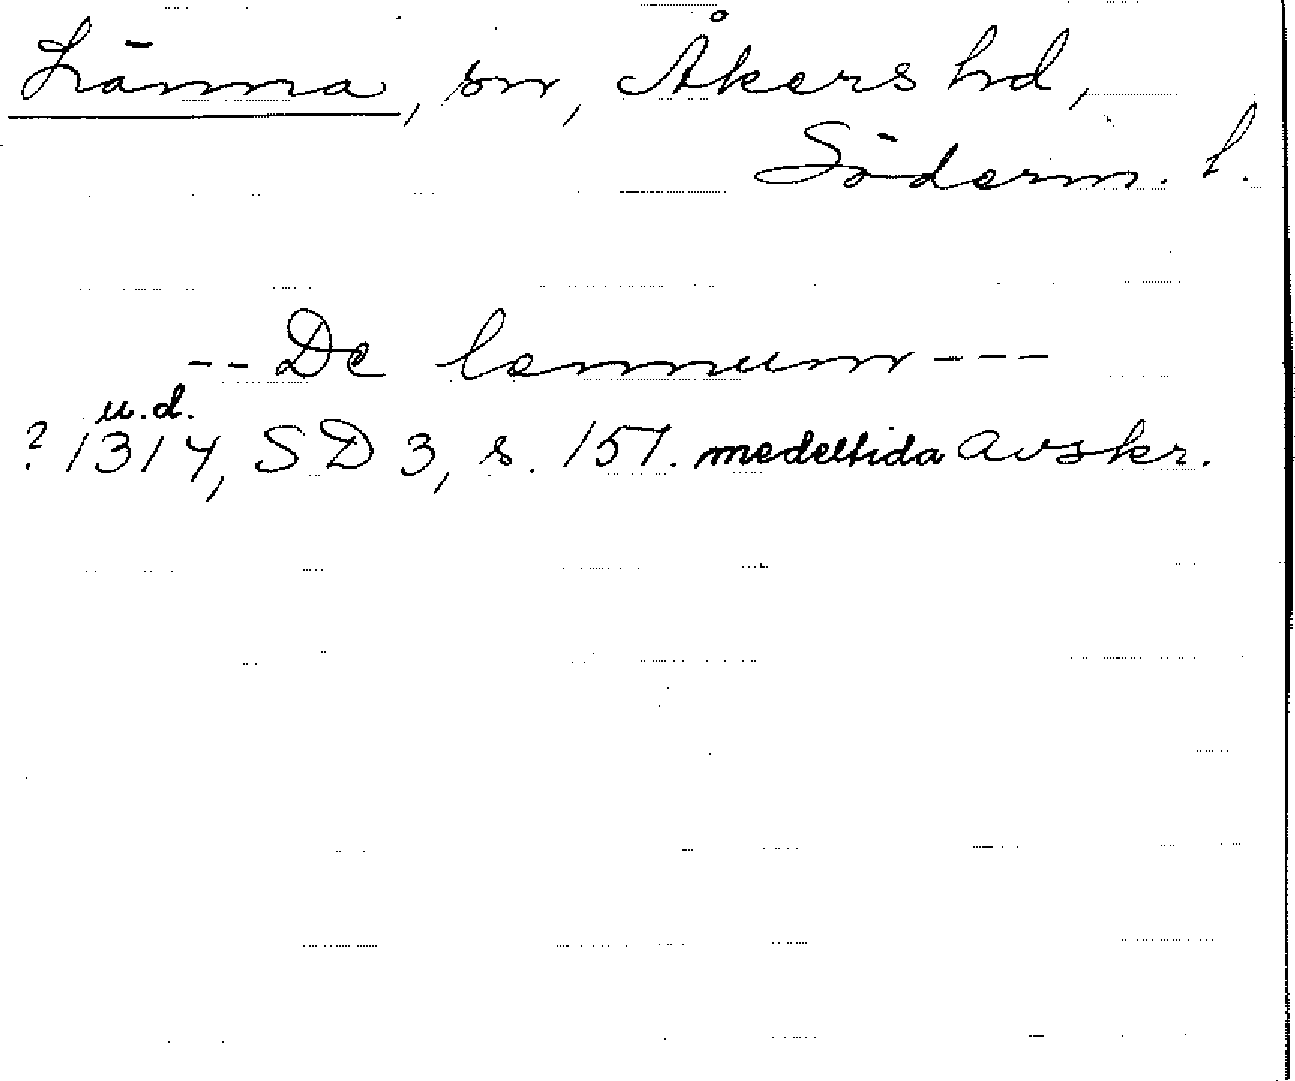 Länna, sn, Åkers hd,
Söderm. l.
-- De lennum ---
u.d.
? 1314, SD 3, s. 157. medeltida avskr.